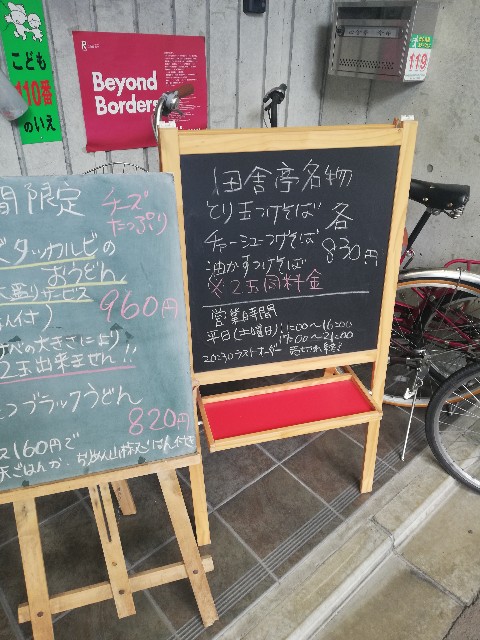 こども
110番
のいえ
Beyond
Borders
119
間限定
チーズ
たっぷり
タッカルビの
おうどん
大盛りサービス
960円
べの大きさにより
2玉出来ません!!
ブラックうどん
820円
ス160円で
天ごはんか、ちりめん山椒ごはん付き
田舎亭名物
とり玉つけそば
チャーシューつけそば
油かすつけそば
各
830円
※2玉同料金
営業時間
平日(土曜日)11:00〜16:00
17:00〜21:00
20:30ラストオーダー 売切れ次第終了